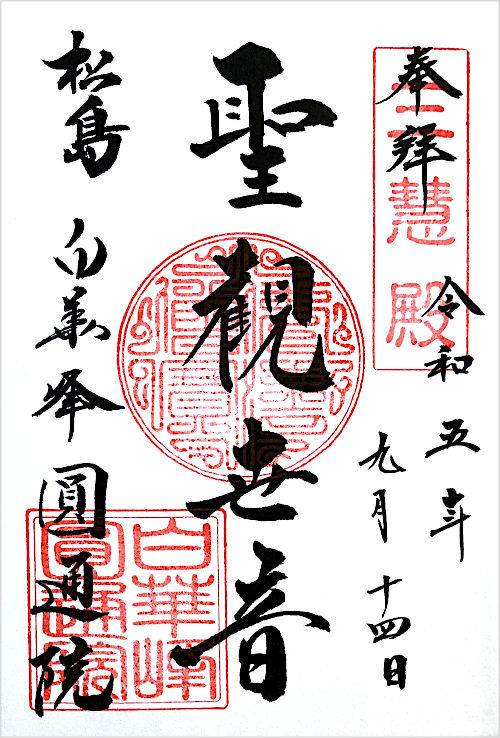 奉拝
三慧殿
令和五年
九月十四日
聖観世音
松島 白華峰 圓通院
白華峰
圓通院